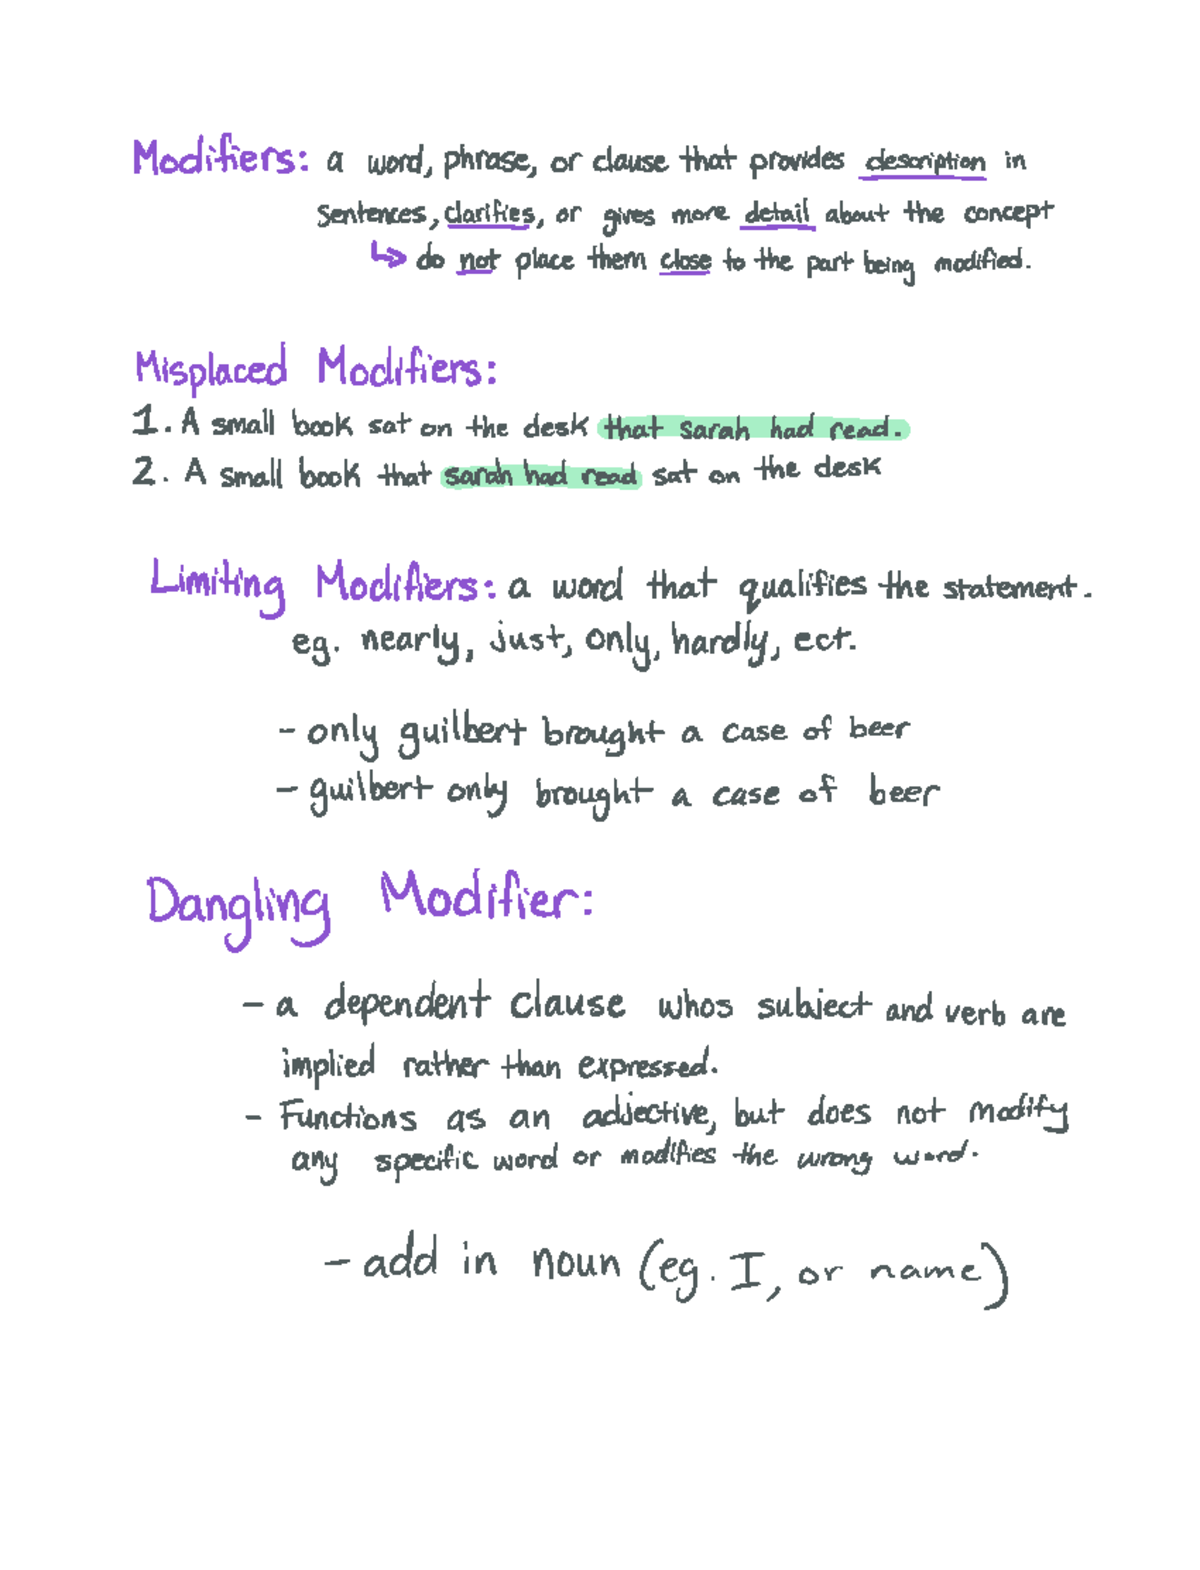 Modifiers: a word, phrase, or clause that provides description in
sentences, clarifies, or gives more detail about the concept
↳ do not place them close to the part being modified.
Misplaced Modifiers:
1. A small book sat on the desk that Sarah had read.
2. A small book that sarah had read sat on the desk
Limiting Modifiers: a word that qualifies the statement.
eg. nearly, just, only, hardly, ect.
- only guilbert brought a case of beer
- guilbert only brought a case of beer
Dangling Modifier:
- a dependent clause whos subject and verb are
implied rather than expressed.
- Functions as an adjective, but does not modify
any specific word or modifies the wrong word.
- add in noun (eg. I, or name)